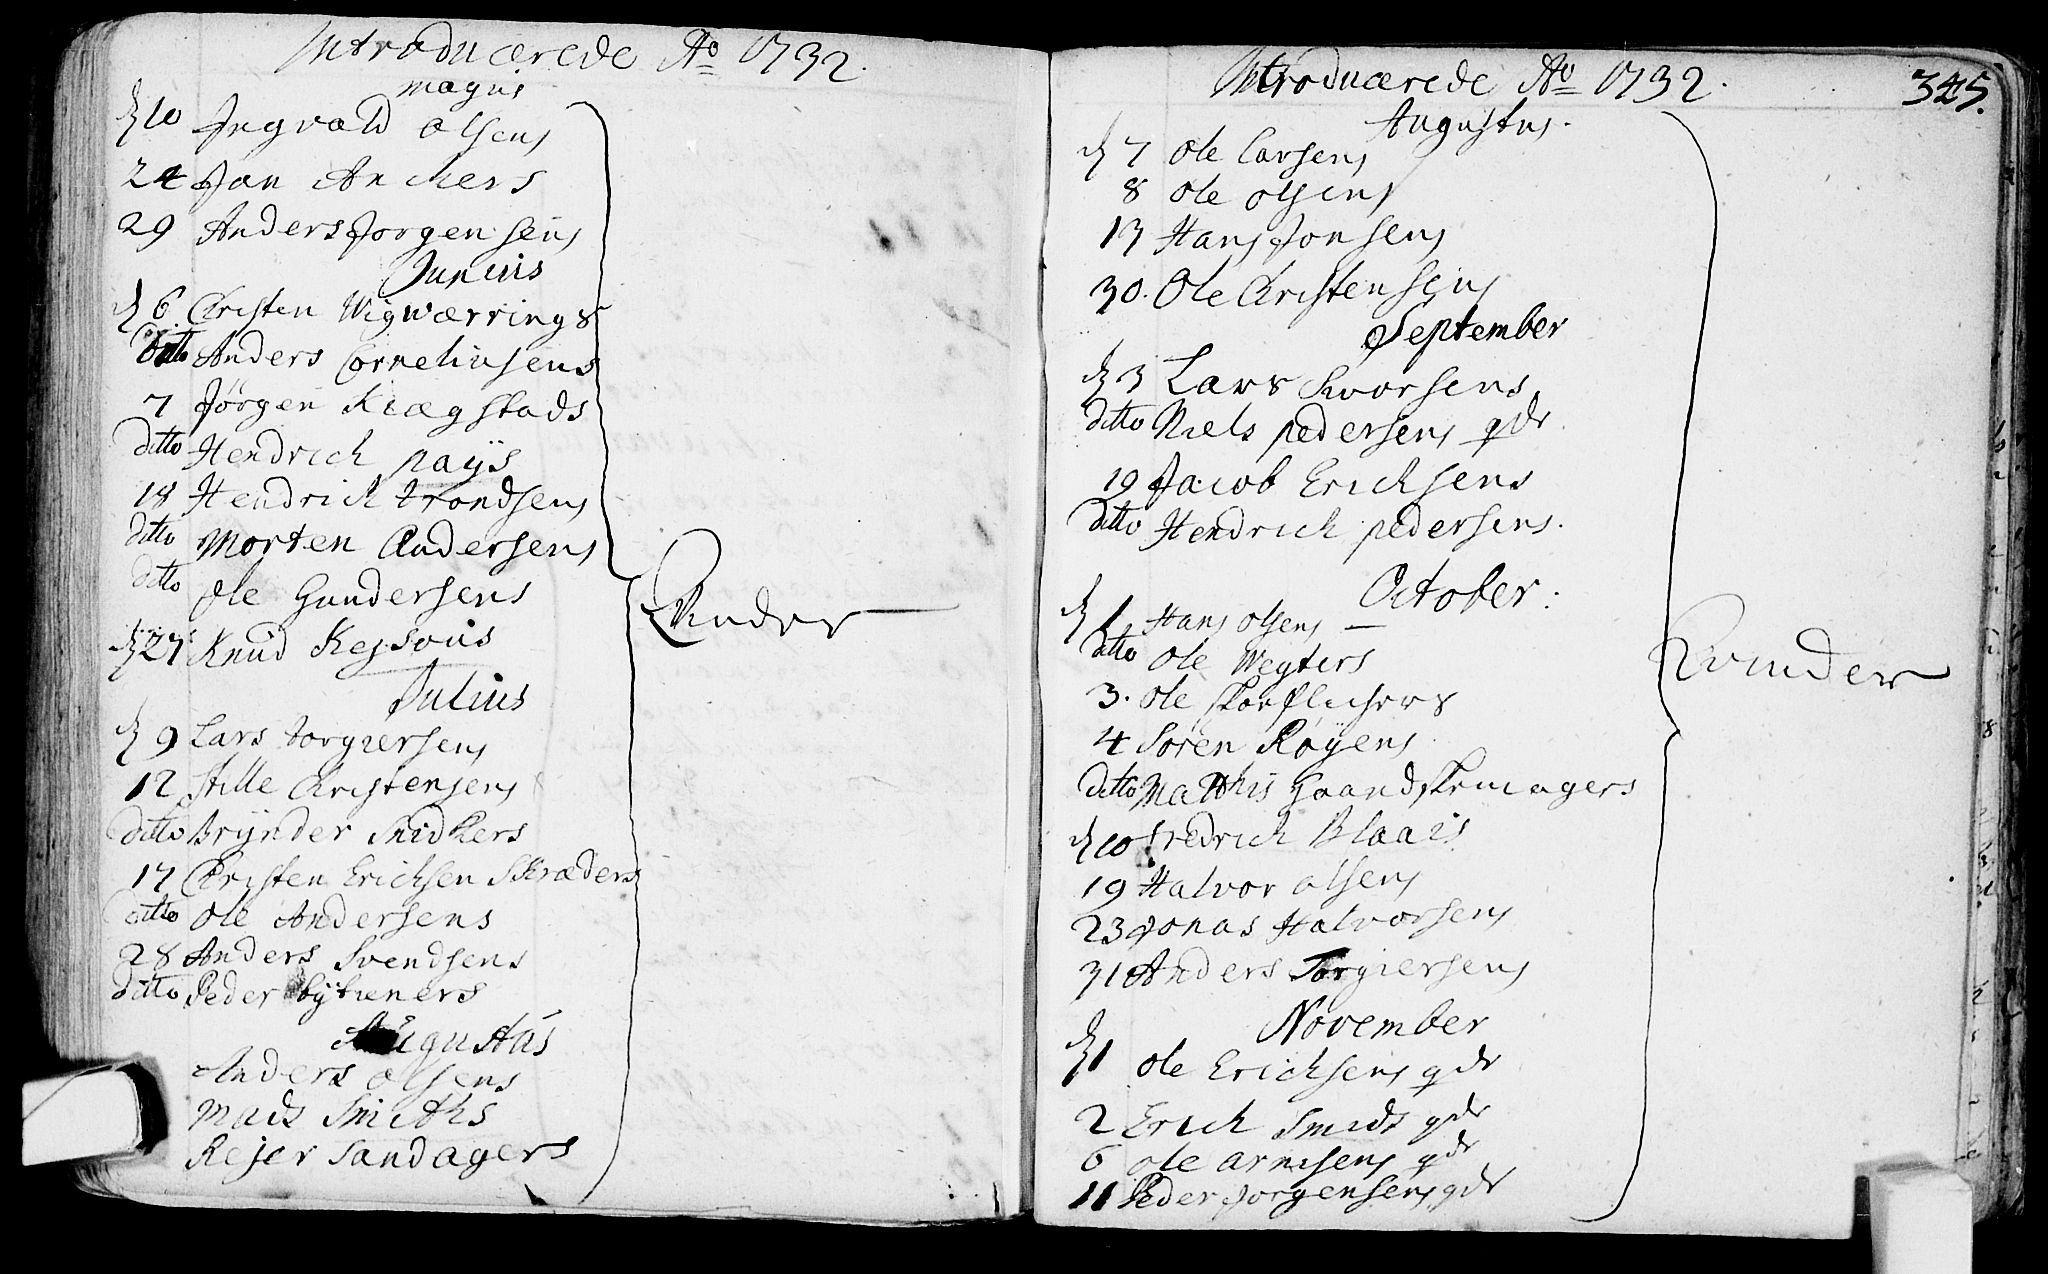 Introducærede Ao 1732.
majus
d 10 Ingvald Olsens
24 Jan Anchers
29 Anders Jorgensens
Junius
d 6 Christen Wigwærrings
ditto Anders Corneliusens
7 Jørgen Kiægstads
ditto Hendrich pays
18 Hendrich trondsens
ditto Morten Andersens
ditto Ole Gundersens
d 27 Knud
Julius
d 9 Lars torgiersens
12 Stille Christensens
ditto Brynder Snidkers
17 Christen Ericksen Skræders
ditto Ole Andersens
28 Anders Svendsens
ditto Peder
Augustus
Anders Olsens
Mads Smiths
Rejer Sandagers
Qvinder
Introducærede Ao 1732.
345.
Augustus.
d 7 Ole Larsens
8 Ole Olsens
13 Hans Jonsens
30. Ole Christensens
September
d 3 Lars Iworsens
ditto Niels pedersens qdr
19 Jacob Ericksens
ditto Hendrich pedersens.
October:
d 1 Hans Olsens
ditto Ole Wegters
3. Ole skoeflichers
4 Soren Røyens
ditto Matthis Haandskemagers
d 10 Fredrich Blaais
19 Halvor Olsens
23 Jonas Halvorsens
31 Anders Torgiersens
November
d 1 Ole Ericksens qdr
2 Erich Smids qdr
6 Ole arnesens qdr
11 Peder Jorgensens qdr
Qvinder